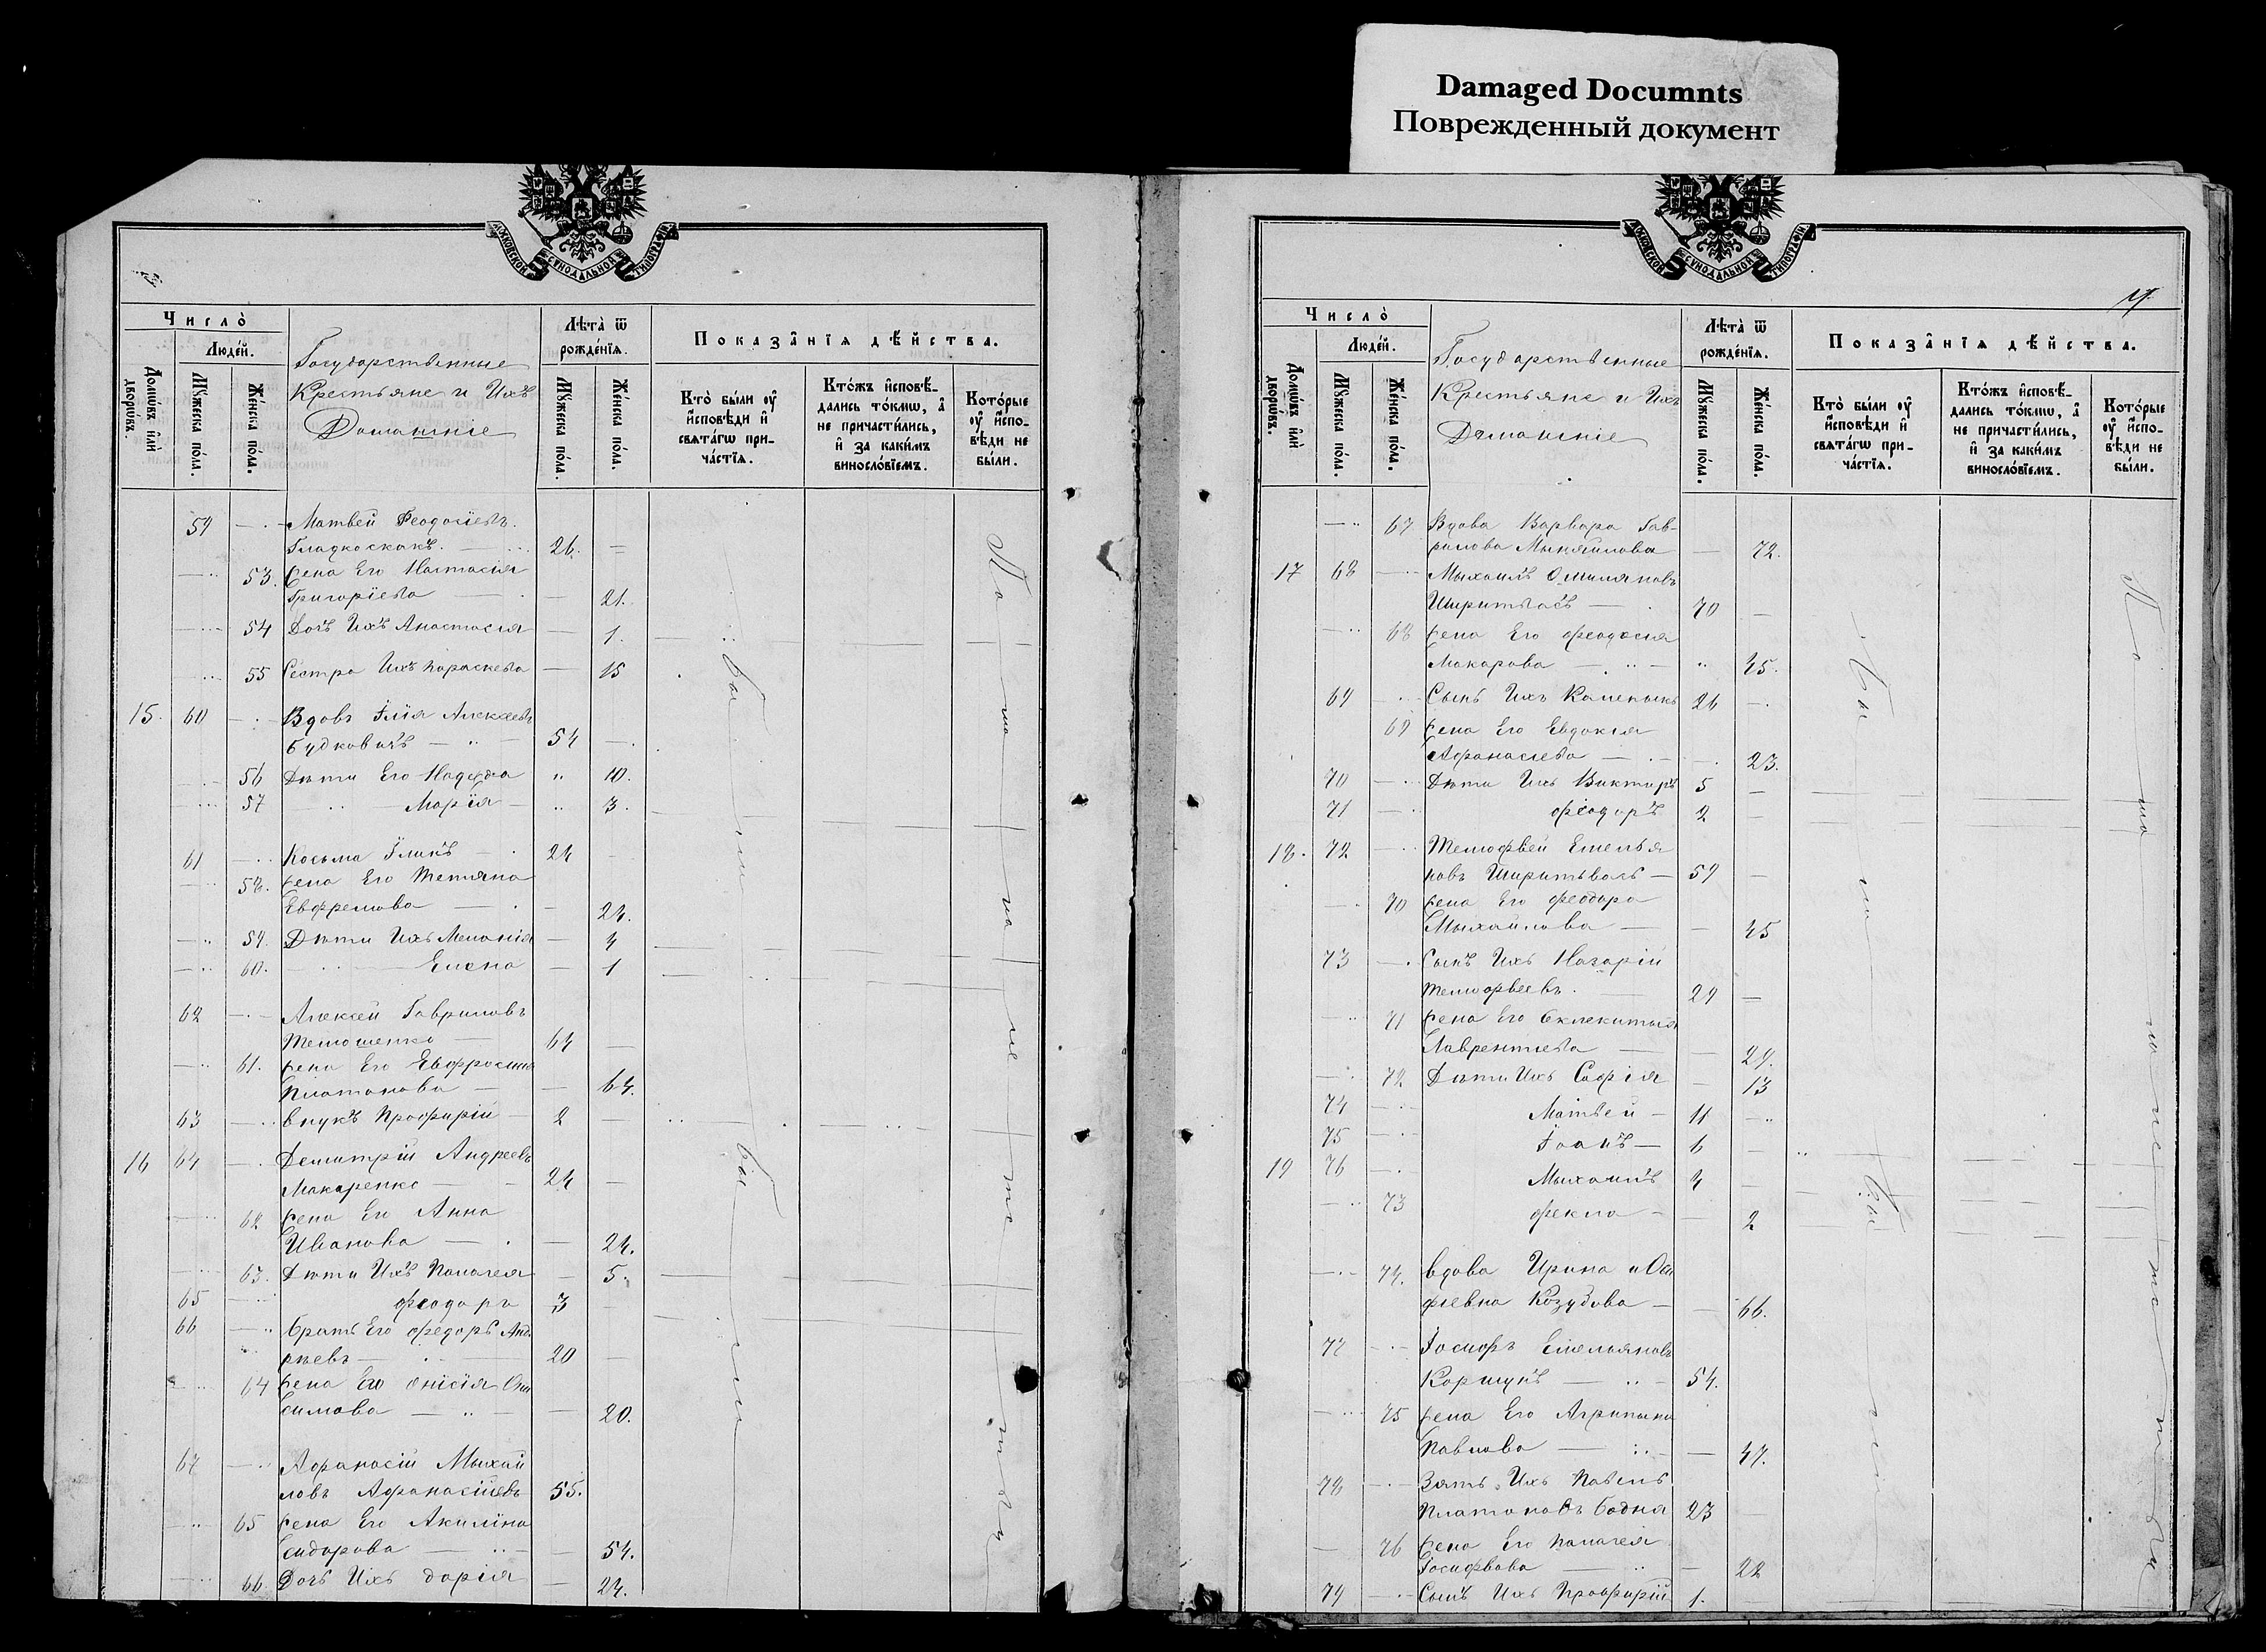 Damaged Documnts
Поврежденный документ
Московской Сѵнодальной Типографіи
Число̀
Люде́й.
Домѡ́въ и҆лѝ дворѡ́въ.
Мꙋ́жеска по́ла.
Же́нска по́ла.
Государственные
Крестьяне и Ихъ
Домашніе
Лѣта̀ ѿ рожде́нїѧ.
Мꙋ́жеска по́ла.
Же́нска по́ла.
Показа̑нїѧ дѣ́йства.
Кто̀ бы́ли ᲂу҆ и҆́сповѣди и҆ свѧта́гѡ при-ча́стїѧ.
Кто́жъ и҆сповѣ́-дались то́кмѡ, а҆ не причасти́лись, и҆ за каки́мъ винослові́емъ.
Кото́рые ᲂу҆ и҆́спо-вѣди не бы́ли.
59 Матвей Феодосіевъ
Гладкоскокъ. 26.
53. жена Его Настасія
Григоріева 21.
54 Дочь Ихъ Анастасія 1.
55 Сестра Ихъ Параскева 15
15. 60 Вдовъ Илія Алексеевъ
Будковичъ 54
56 Дѣти Его Надежда 10.
57 Марія 3.
61 Косьма Іліинъ 24
58. жена Его Тетяна
Евфремова 24.
59. Дѣти Ихъ Меланія 4
60. Елена 1
62 Алексей Гавриловъ
Темошенко 64
61. жена Его Евфросинія
Платонова 64.
63 внукъ Профирій 2
16 64 Демитрій Андреевъ
Макаренко 24
62 жена Его Анна
Иванова 24.
63. Дѣти Ихъ Палагея 5.
65 Феодоръ 3
66 братъ Его Федоръ Анд
рѣевъ 20
64 жена Его Онісія Они
симова 20.
67 Афанасій Мыхай
ловъ Афанасіевъ 55.
65 жена Его Акилина
Сидорова 54.
66. Дочь Ихъ Дарія 24.
были
были
По мало не тству
Московской Сѵнодальной Типографіи
Число̀
Люде́й.
Домѡ́въ и҆лѝ дворѡ́въ.
Мꙋ́жеска по́ла.
Же́нска по́ла.
Государственные
Крестьяне и Ихъ
Домашніе
Лѣта̀ ѿ рожде́нїѧ.
Мꙋ́жеска по́ла.
Же́нска по́ла.
Показа̑нїѧ дѣ́йства.
Кто̀ бы́ли ᲂу҆ и҆́сповѣди и҆ свѧта́гѡ при-ча́стїѧ.
Кто́жъ и҆сповѣ́-дались то́кмѡ, а҆ не причасти́лись, и҆ за каки́мъ винослові́емъ.
Кото́рые ᲂу҆ и҆́спо-вѣди не бы́ли.
67 Вдова Варвара Гав-
рилова Мыхайлова 72.
17 68 Мыхаилъ Омиляновъ
Ширитвасъ 70
68 жена Его Феодосія
Макарова 45.
69 Сынъ Ихъ 26
69 жена Его Евдокія
Афанасіева 23.
70 Дѣти Ихъ Викторъ 5
71 Феодоръ 2
18. 72 Темофей Емелья
новъ 59
70 жена Его Феодора
Мыхайлова 45
73 Сынъ Ихъ Назарій
Темофеевъ. 29
71 жена Его
Лаврентіева 29.
72 Дѣти Ихъ Софія 13
74 Матвей 11
75 Іоанъ 6
19 76 Мыхаилъ 4
73 Фекла 2
74. вдова Ирина иОси
фіевна Козубова 66.
77 Іосифъ Емельяновъ
Коршунъ 54.
75 жена Его Агрипына
Павлова 47.
78 Зять Ихъ Павелъ
Платоновъ Бодня 23
76 жена Его Палагея
Іосифова 22
79 Сынъ Ихъ Профирій 1.
были
были
По мало не тству